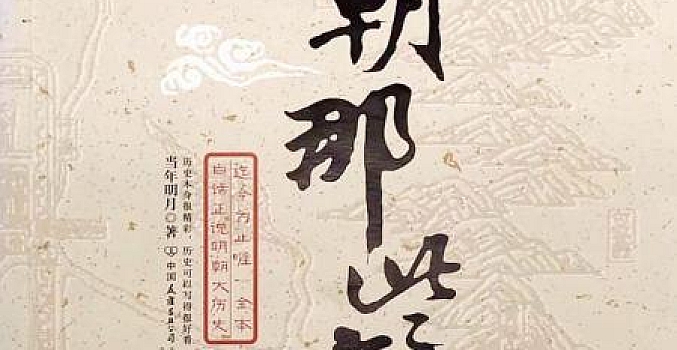 朝那些
迄今为止唯一全本
白话正说明朝大历史
历史本身很精彩,历史可以写得很好看
当年明月◎著 中国友谊出版公司